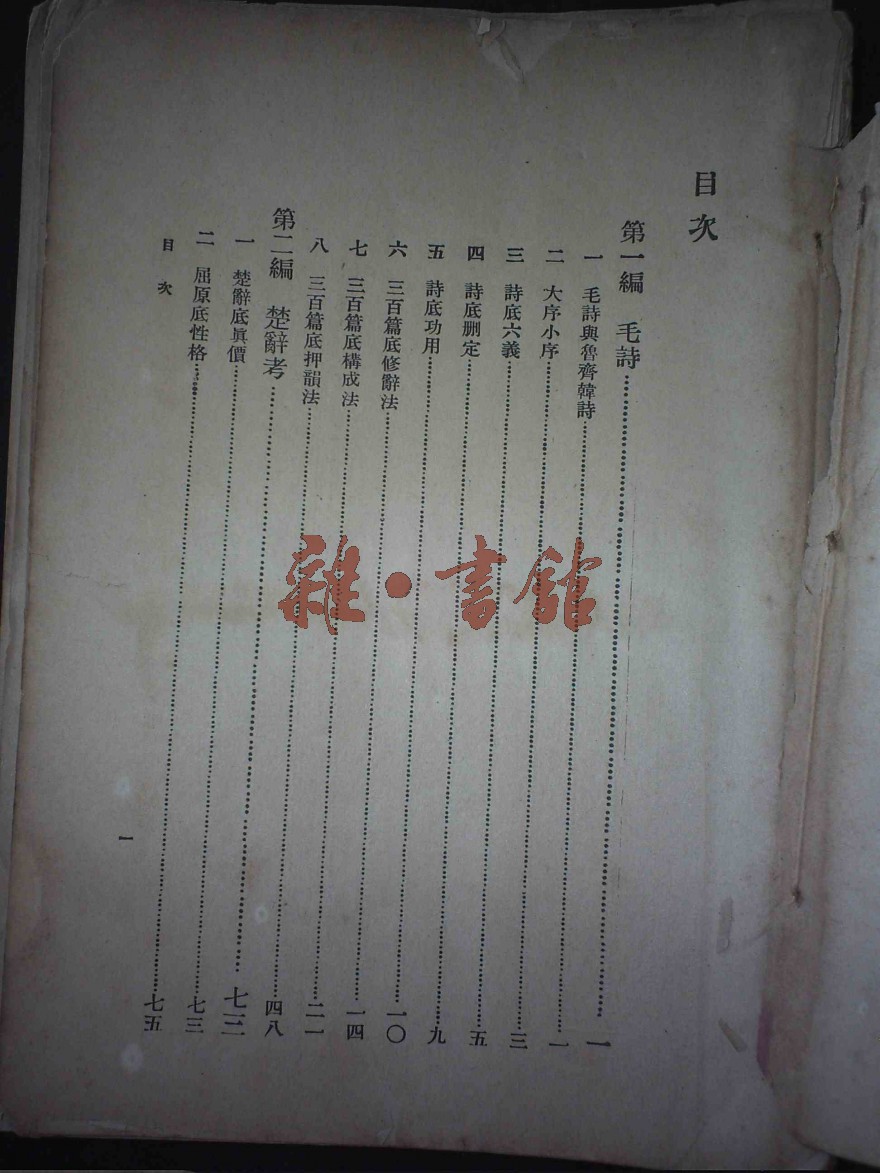 目次
第一編 毛詩……一
一 毛詩與魯齊韓詩……一
二 大序小序……三
三 詩底六義……五
四 詩底刪定……九
五 詩底功用……一〇
六 三百篇底修辭法……一四
七 三百篇底構成法……二一
八 三百篇底押韻法……四八
第二編 楚辭考……七三
一 楚辭底眞價……七三
二 屈原底性格……七五
目次
一
雜·書館